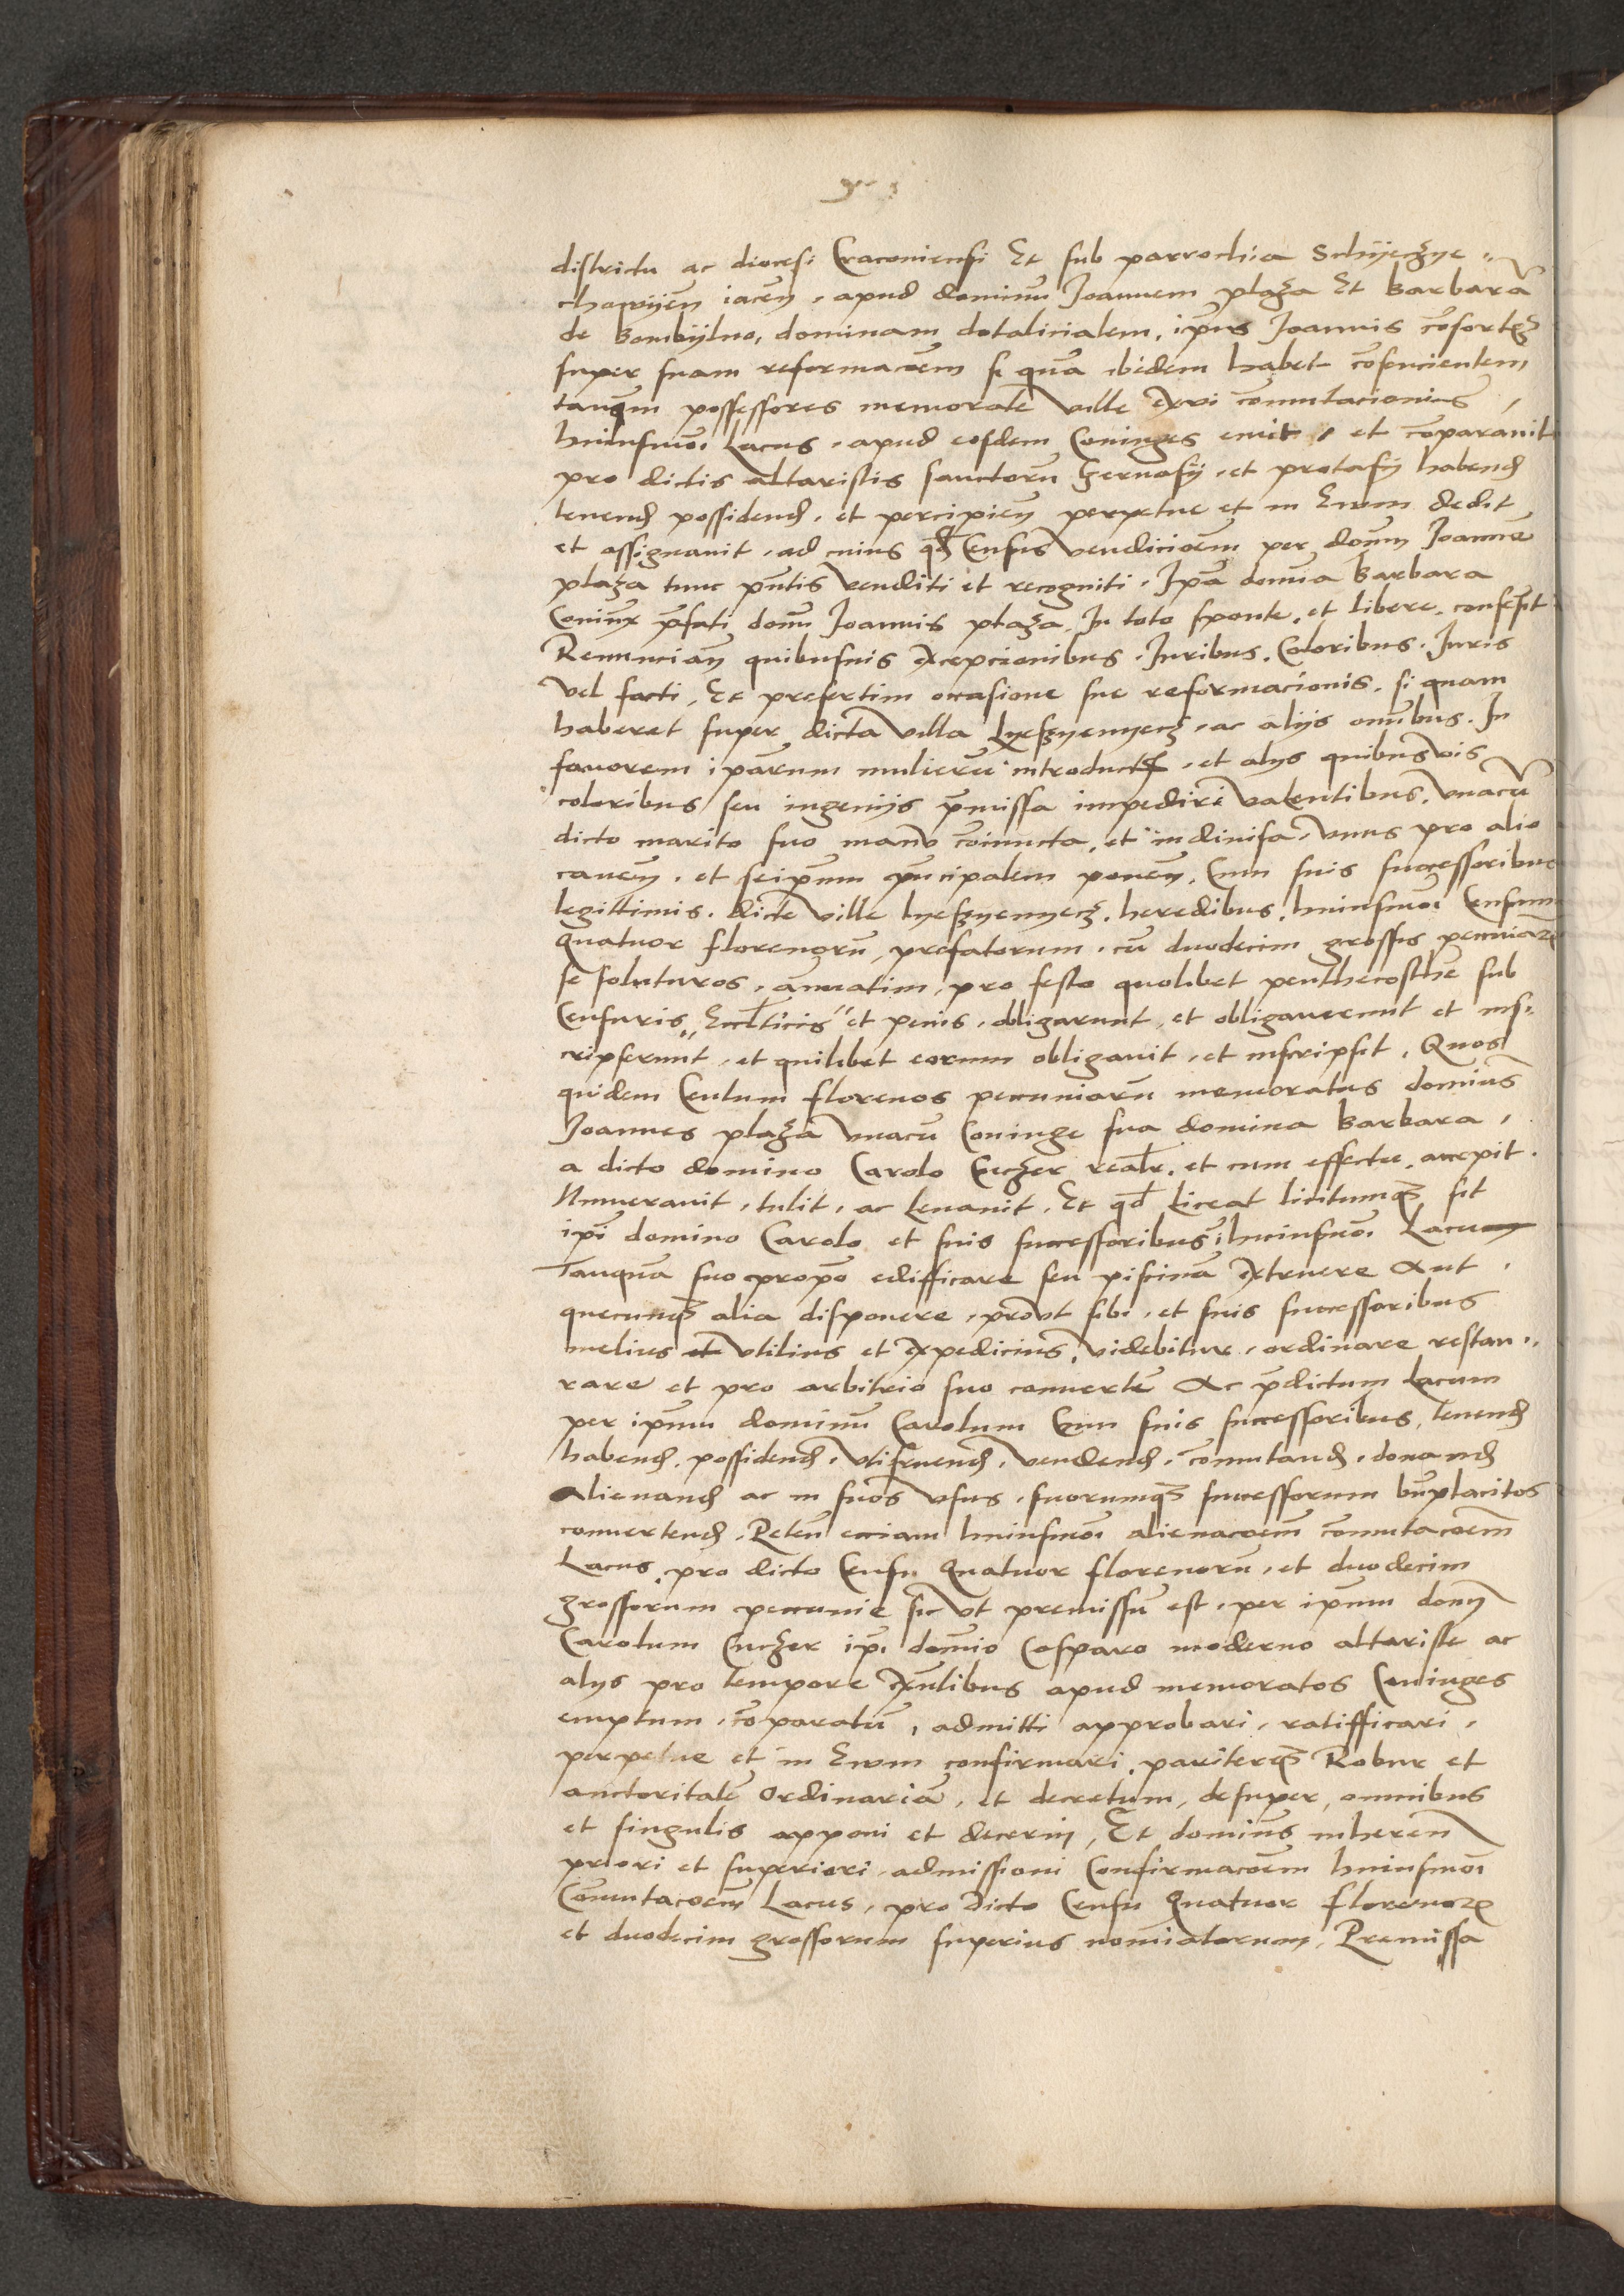 districtu ac diocesi Cracoviensi Et sub parrochia Schijeczye„
chowijen̄ iacen̄ , apud dominū Joannem plaza Et Barbarā
de Bombijlno, dominam dotalicialem, ip̄ius Joannis cōsortē
super suam reformacōem si quā ibidem habet cōsencientem,
tanq̄m possessores memorate ville ex vi cōmutacionis
huiusmōi Lacus , apud eosdem Coniuges emit , et cōparavit
pro dictis altaristis sanctorū Gervasij , et protasij habend̄
tenend̄ possidend̄ , et percipien̄ perpetue et in Evum dedit
et assignavit , ad cuius q̄d Census vendicioēm per domū Joannē
plaza tunc pn̄tis venditi et recogniti , Ip̄a domīa Barbara
Coniunx p̄fati domī Joannis plaza In toto sponte, et libere, consēsit
Renuncian̄ quibusvis excepcionibus , Juribus , Coloribus , Juris
vel facti , Et presertim occasione sue reformacionis , si quam
haberet super dicta villa Lyeszyenyecz , ac alijs omībus , In
favorem ip̄arum mulierū introductis , et alijs quibusvis
coloribus seu ingenijs p̄missa impedire valentibus, vnacū
dicto marito suo manu cōiuncta , et indivisa , vnus pro alio
caven̄ , et seip̄um p̄ncipalem ponen̄ , Cum suis successoribus
legittimis , dicte ville lyeszyenyecz , heredibus , huiusmōi Censum
Quatuor florenorū , prefatorum , cū duodecim grossis pecuniarꝝ
se soluturos , annuatim , pro festo quolibet penthecosthe sub
Censuris Eccl̄ticis et penis , obligarunt , et obligaverunt et ins„
cripserunt , et quilibet eorum obligavit , et inscripsit , Quos
quidem Centum florenos pecuniarū memoratus domīus
Joannes plaza vnacū Coniuge sua domina Barbara ,
a dicto domino Carolo Guczer realr̄ , et cum effectu , accepit ,
Numeravit , tulit , ac levavit , Et qd̄ liceat licitumqꝫ sit
ip̄i domino Carolo et suis successoribus huiusmōi Lacum
Tanquā suo prop̄o edifficare seu piscinā extruere Aut ,
quecunqꝫ alia disponere , prout sibi , et suis successoribus
melius et vtilius et expedicius , videbitur , ordinare restau„
rare et pro arbitrio suo convertē Ac p̄dictum Lacum
per ip̄um dominū Carolum Cum suis successoribus , tenend̄
habend̄ , possidend̄ , vtifruend̄ , vendend̄ , cōmutand̄ , donand̄
Alienand̄ ac in suos vsus , suorumqꝫ successorum bn̄placitos
convertend̄ , Peten̄ eciam huiusmōi alienacoēm cōmutacoēm
Lacus , pro dicto Censu Quatuor florenorū , et duodecim
grossorum pecunie sic vt premissū est , per ip̄um domī
Carolum Guczer ip̄i domīo Casparo moderno altariste ac
alijs pro tempore exn̄tibus apud memoratos Coniuges
emptum , cōparatū , admitti approbari , ratifficari ,
perpetue et in Evum confirmari , pariterqꝫ Robur et
auctoritatē Ordinariā , et decretum , desuper , omnibus
et singulis apponi et decerni , Et domīus inheren̄
priori et superiori , admissioni Confirmacoēm huiusmōi
Cōmutacoēm Lacus , pro dicto Censu Quatuor florenorꝝ
et duodecim grossorum superius nomīatorum , Premissa